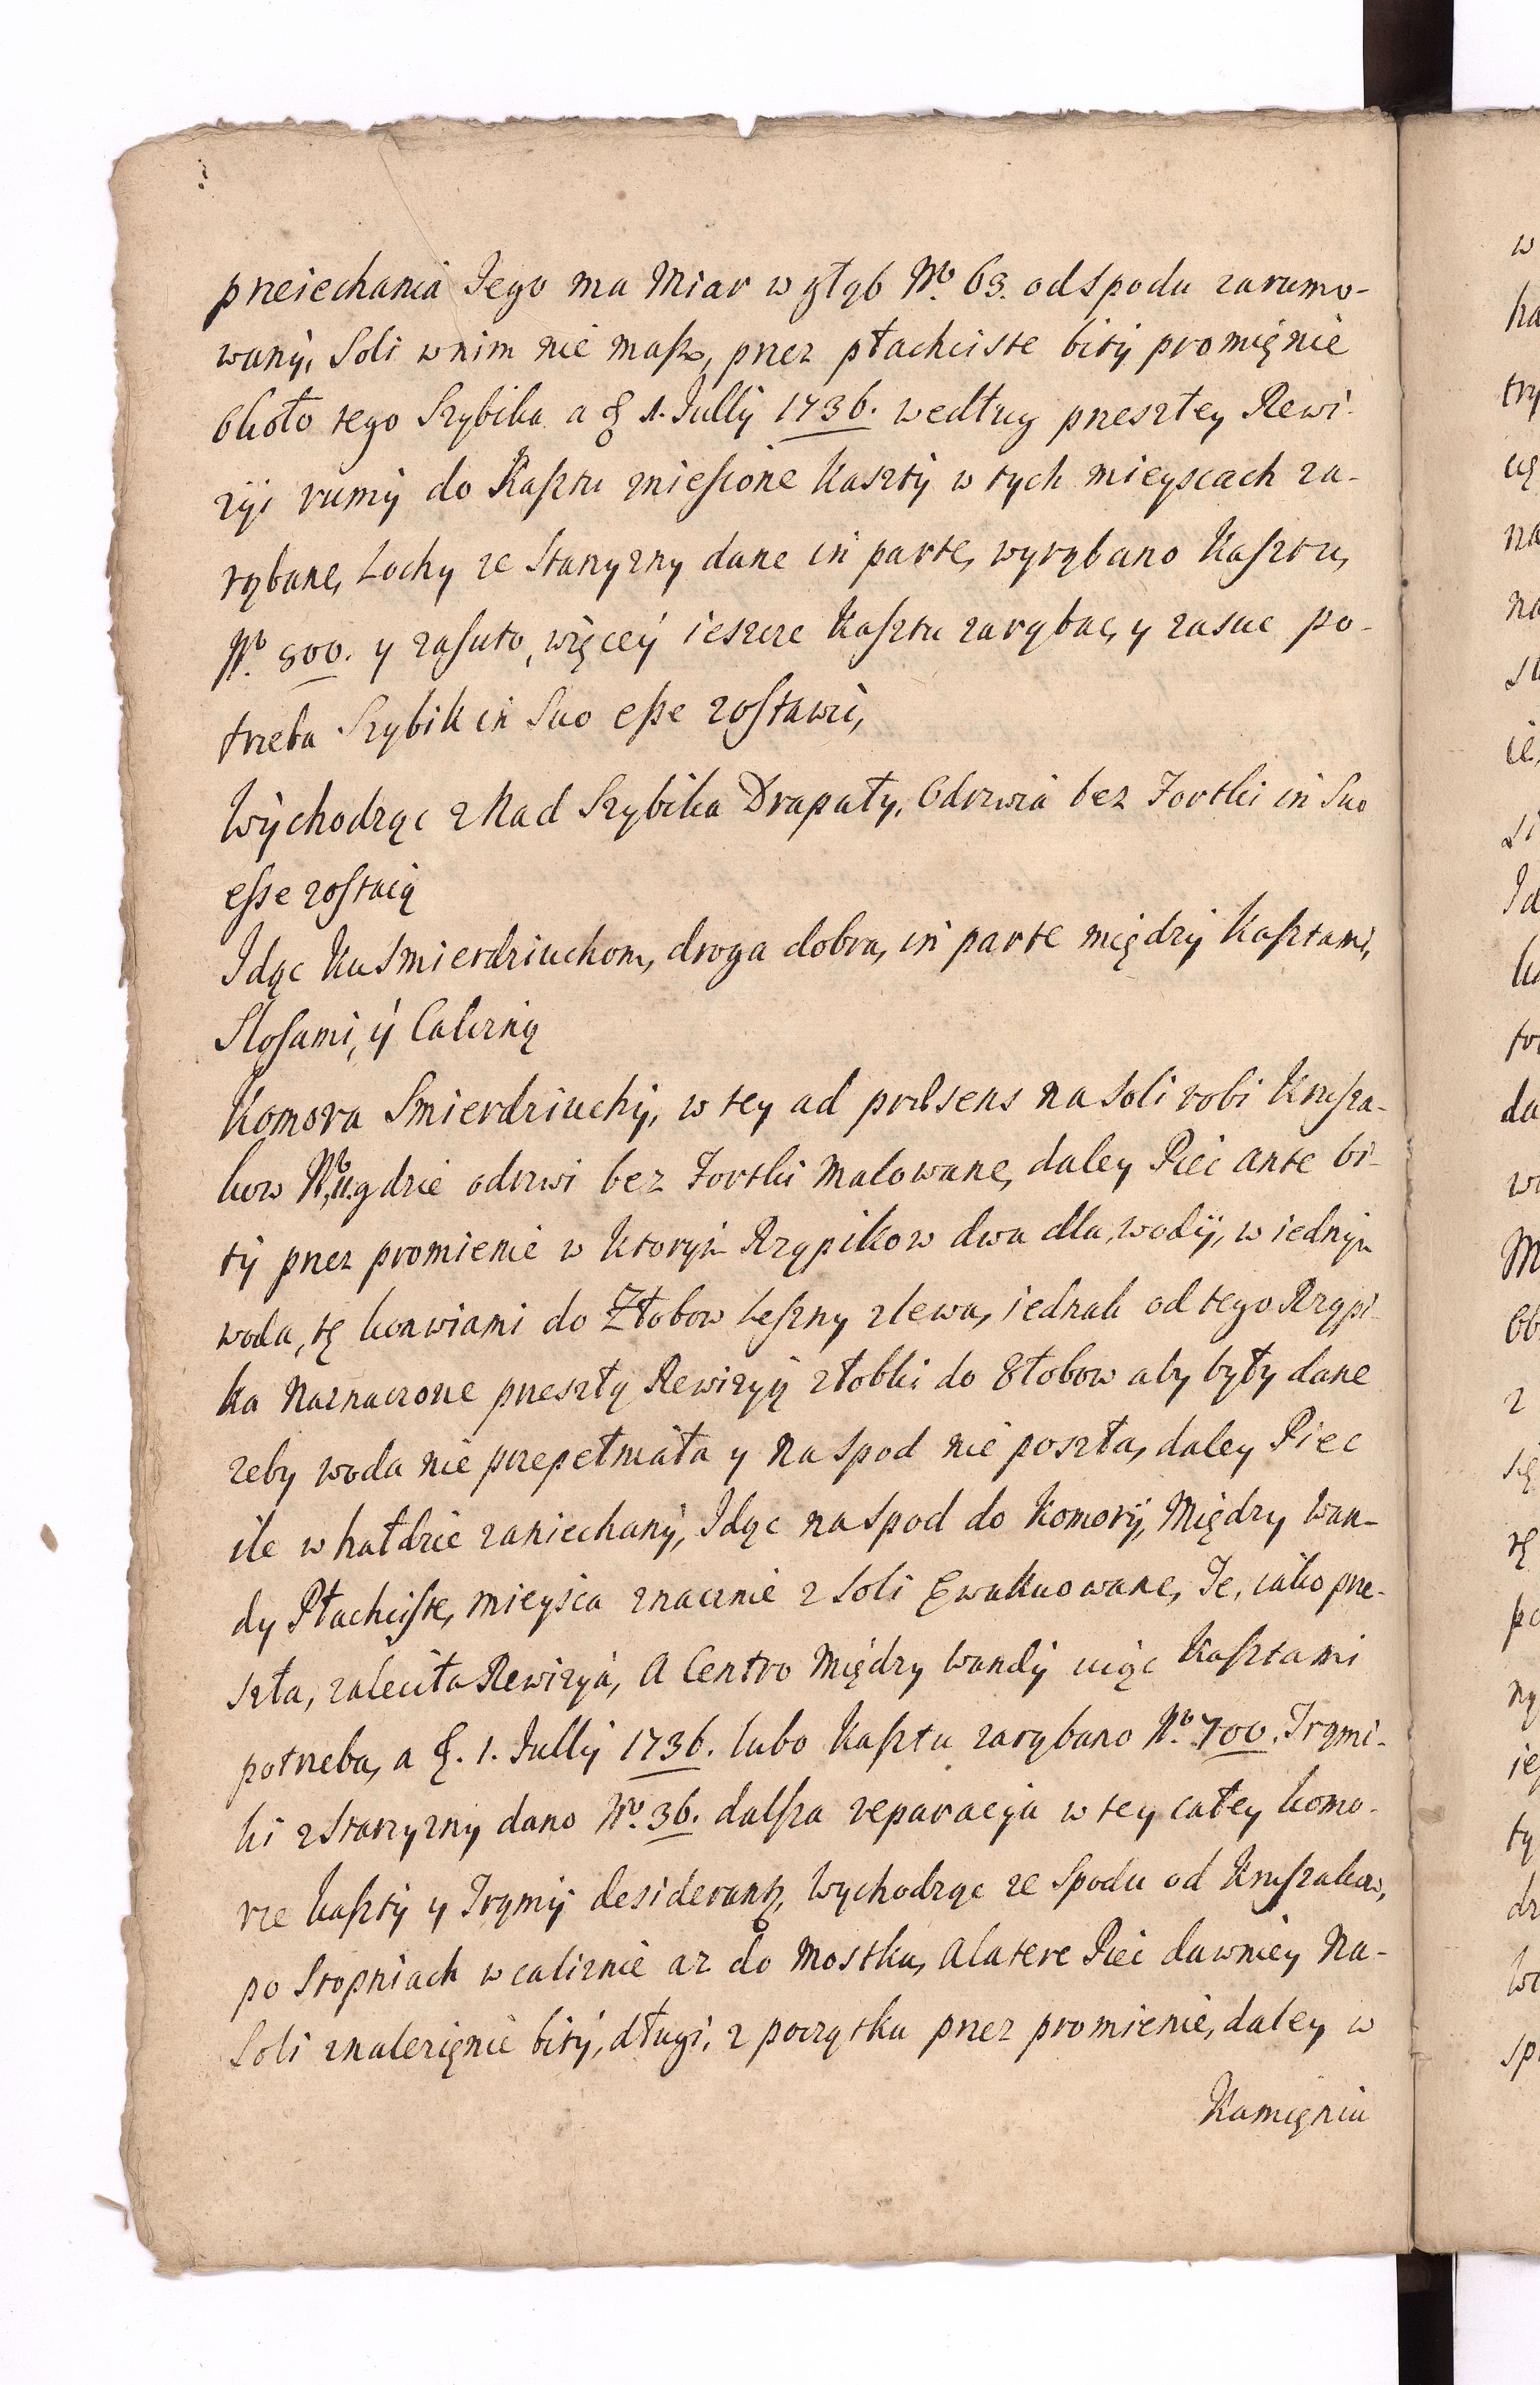 przeiechania Jego ma Miar w głąb No. 63. od spodu zarumo-
wany, Soli w nim nie masz, przez płachciste bity promięnie
Około tego Szybika a 1. Jullij 1736. według przeszłey Rewi-
zyi rumy do Kasztu zniesione Kaszty w tych mieyscach za-
rąbane, Lochy ze Starzyzny dane in parte, wyrąbano Kasztu,
No. 800. y zasuto, więcey ieszcze Kasztu zarąbac, y zasuc po-
trzeba Szybik in Suo esse zostawi,
Wychodząc z Nad Szybika Drapały, Odrzwia bez Fortki in Suo
esse zostaią
Idąc Ku Smierdziuchom, droga dobra, in parte między Kasztami,
Stosami, y Calizną
Komora Smierdziuchy, w tey ad præsens na soli robi Krusza-
kow No. gdzie odrzwi bez Fortki Malowane, daley Piec ante bi-
ty przez promienie w Ktorym Rząpikow dwa dla wody, w iednym
woda, tę konwiami do Złobow Leszny zlewa, iednak od tego Rząpi-
ka Naznaczone przeszłą Rewizyą złobki do Złobow aby były dane
zeby woda nie przepełniała y na spod nie poszła, daley Piec
ile w hałdzie zaniechany, Idąc na spod do Komory, Między Wan-
dy Płachciste, mieysca znacznie z Soli Ewakuowane, Te, iako prze-
szła, zaleciła Rewizya, a Centro Między Wandy uiąc Kasztami
potrzeba, a 1. Jullij 1736. lubo Kasztu zarąbano No. 700. Trąmi-
ki z Starzyzny dano No. 36. dalsza reparacya w tey całey komo-
rze kaszty y Trąmy desiderant, Wychodząc ze Spodu od Kruszakow,
po Stopniach w caliznie az do Mostku, a latere Piec dawniey Na-
Soli znalezięnie bity, długi, z początku przez promienie, daley w
Kamięniu
w
tr
na
da
M
Ob
z
po
ty
dr
sp